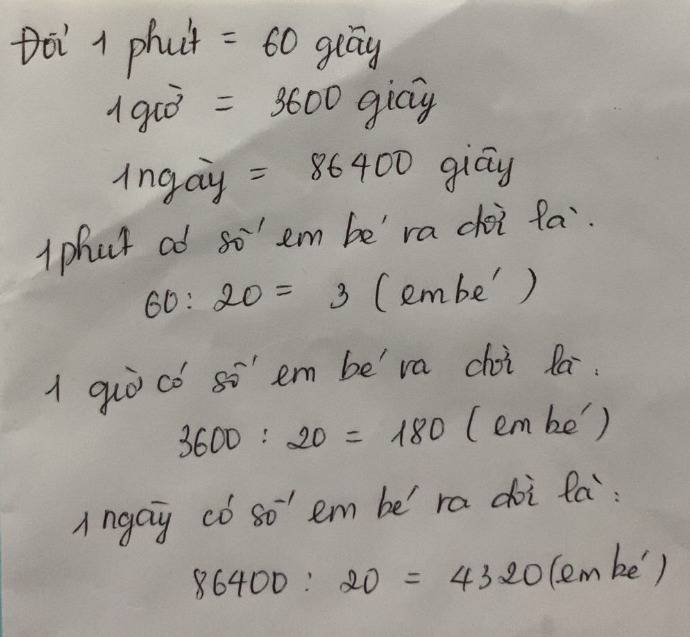 Đổi 1 phút = 60 giây
1 giờ = 3600 giây
1 ngày = 86400 giây
1 phút có số em bé ra đời là.
60 : 20 = 3 ( em bé )
1 giờ có số em bé ra đời là.
3600 : 20 = 180 ( em bé )
1 ngày có số em bé ra đời là:
86400 : 20 = 4320 (em bé )